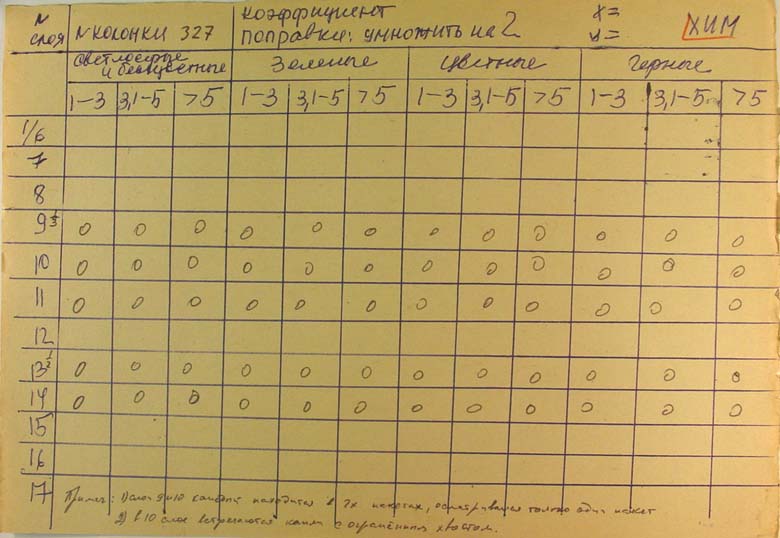 N слоя N колонки 327 Коэффициент поправки: умножить на 2 x= y= ХИМ
светлосерые и бесцветные Зеленые Цветные Черные
1-3 3,1-5 >5 1-3 3,1-5 >5 1-3 3,1-5 >5 1-3 3,1-5 >5
1/6
7
8
9 1/3 0 0 0 0 0 0 0 0 0 0 0 0
10 0 0 0 0 0 0 0 0 0 0 0 0
11 0 0 0 0 0 0 0 0 0 0 0 0
12
13 1/2 0 0 0 0 0 0 0 0 0 0 0 0
14 0 0 0 0 0 0 0 0 0 0 0 0
15
16
17
Примеч: 1) слои 9 и 10 каждый находится в 2х пакетах, осматривался только один пакет
2) в 10 слое встречаются камн с хвостом.